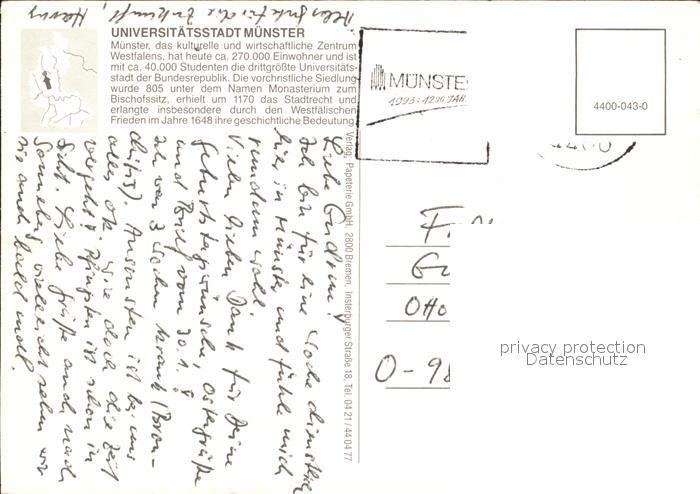 Alles Gute für die Zukunft,
UNIVERSITÄTSSTADT MÜNSTER
Münster, das kulturelle und wirtschaftliche Zentrum
Westfalens, hat heute ca. 270.000 Einwohner und ist
mit ca. 40.000 Studenten die drittgrößte Universitäts-
stadt der Bundesrepublik. Die vorchristliche Siedlung
wurde 805 unter dem Namen Monasterium zum
Bischofssitz, erhielt um 1170 das Stadtrecht und
erlangte insbesondere durch den Westfälischen
Frieden im Jahre 1648 ihre geschichtliche Bedeutung
Liebe Gudrun!
Ich bin für eine Woche dienstlich
hier in Münster und fühle mich
rundum wohl.
Vielen lieben Dank für Deine
Geburtstagswünsche, Ostergrüße
und Brief vom 30.1.!
Ich war 3 Wochen krank (Bron-
chitis). Ansonsten ist bei uns
alles ok. Wie doch die Zeit
vergeht! Pfingsten ist schon in
Sicht. Liebe Grüße auch nach
Sonneberg, vielleicht sehen wir
uns auch bald mal.
Verlag, Papeterie GmbH, 2800 Bremen, Insterburger Straße 18, Tel. 04 21 / 44 04 77
MÜNSTE
1993: 1200 JAH
4400-043-0
F
Gu
Otto
O-98
privacy protection
Datenschutz